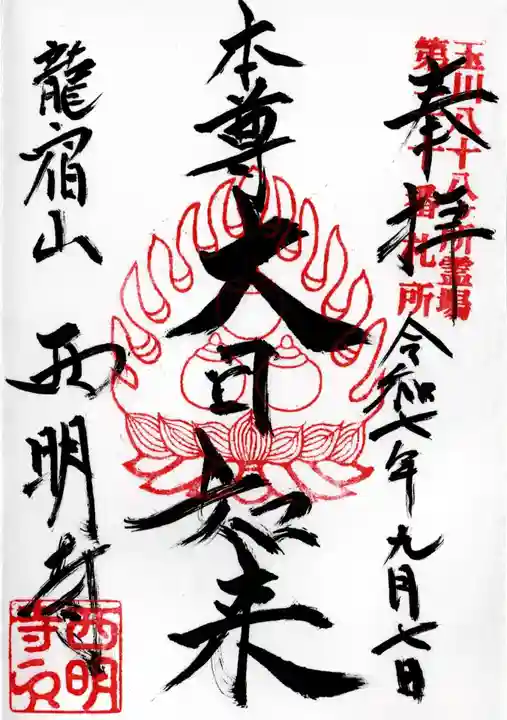 玉川八十八ヶ所霊場
第 十 番札所
奉拝
令和七年九月七日
本尊
大日如来
龍宿山 西明寺
西明
寺印